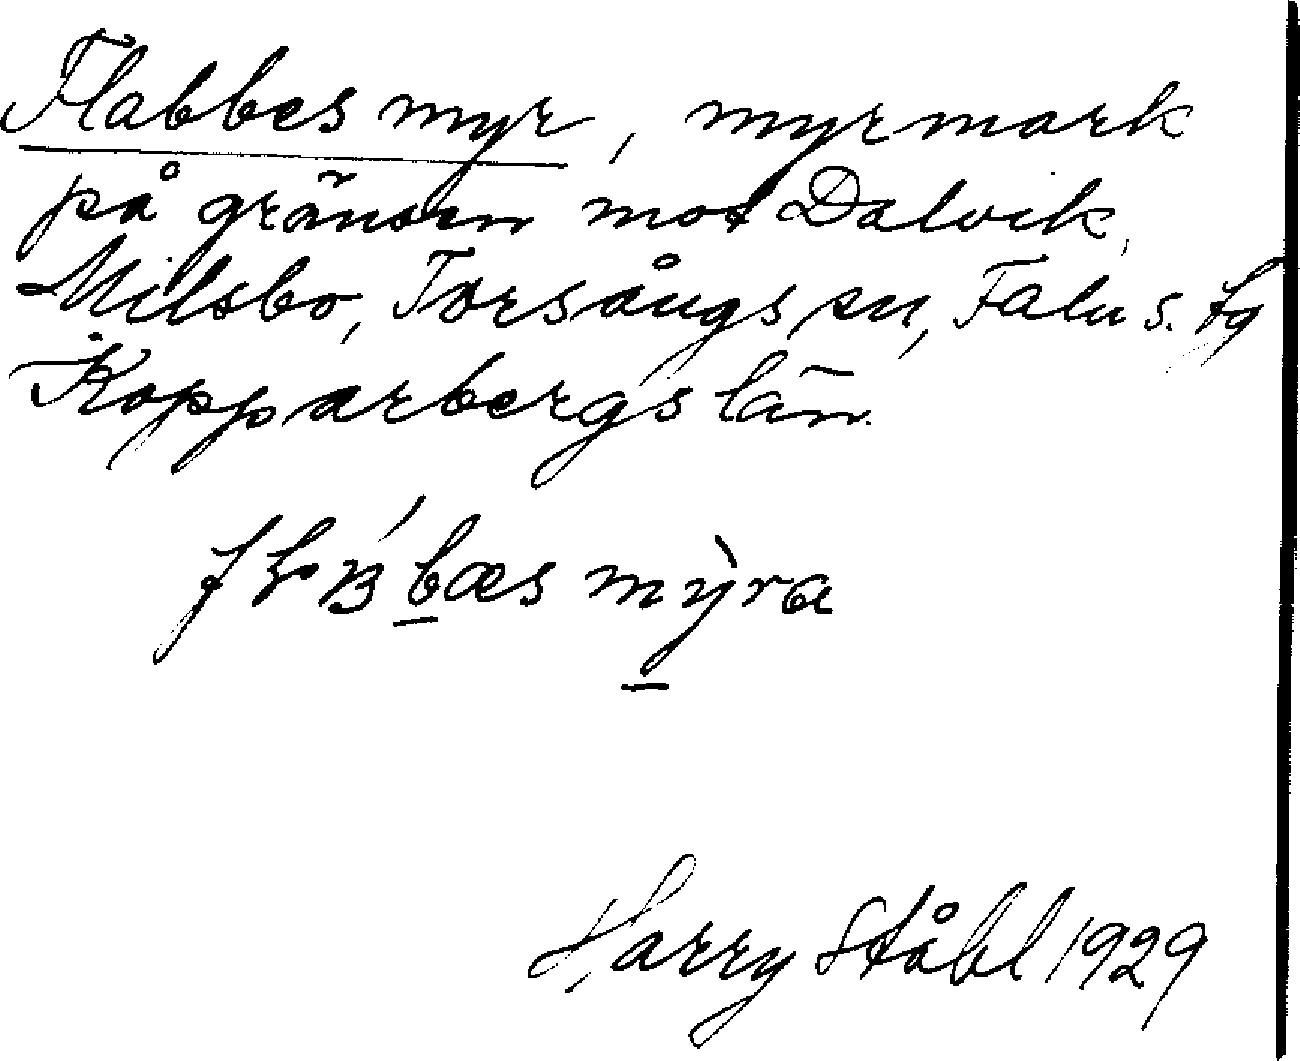 Flabbes myr, myrmark
på gränsen mot Dalvik,
Milsbo, Torsångs sn, Falu s. tg
Kopparbergs län.
bæs mỳra
Harry Ståhl 1929